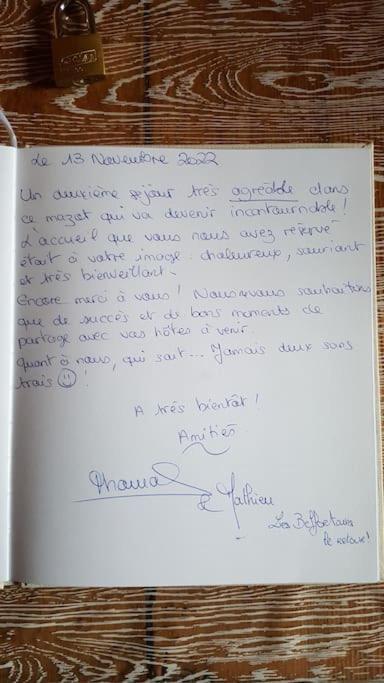 Le 13 Novembre 2022
Un deuxième séjour très agréable dans
ce mazot qui va devenir incontournable !
L'accueil que vous nous avez réservé
était à votre image : chaleureux, souriant
et très bienveillant.
Encore merci à vous ! Nous vous souhaitons
que de succès et de bons moments de
partage avec vos hôtes à venir.
Quant à nous, qui sait... Jamais deux sans
trois ☺ !
A très bientôt !
Amitiés
& Mathieu
Les
le retour !